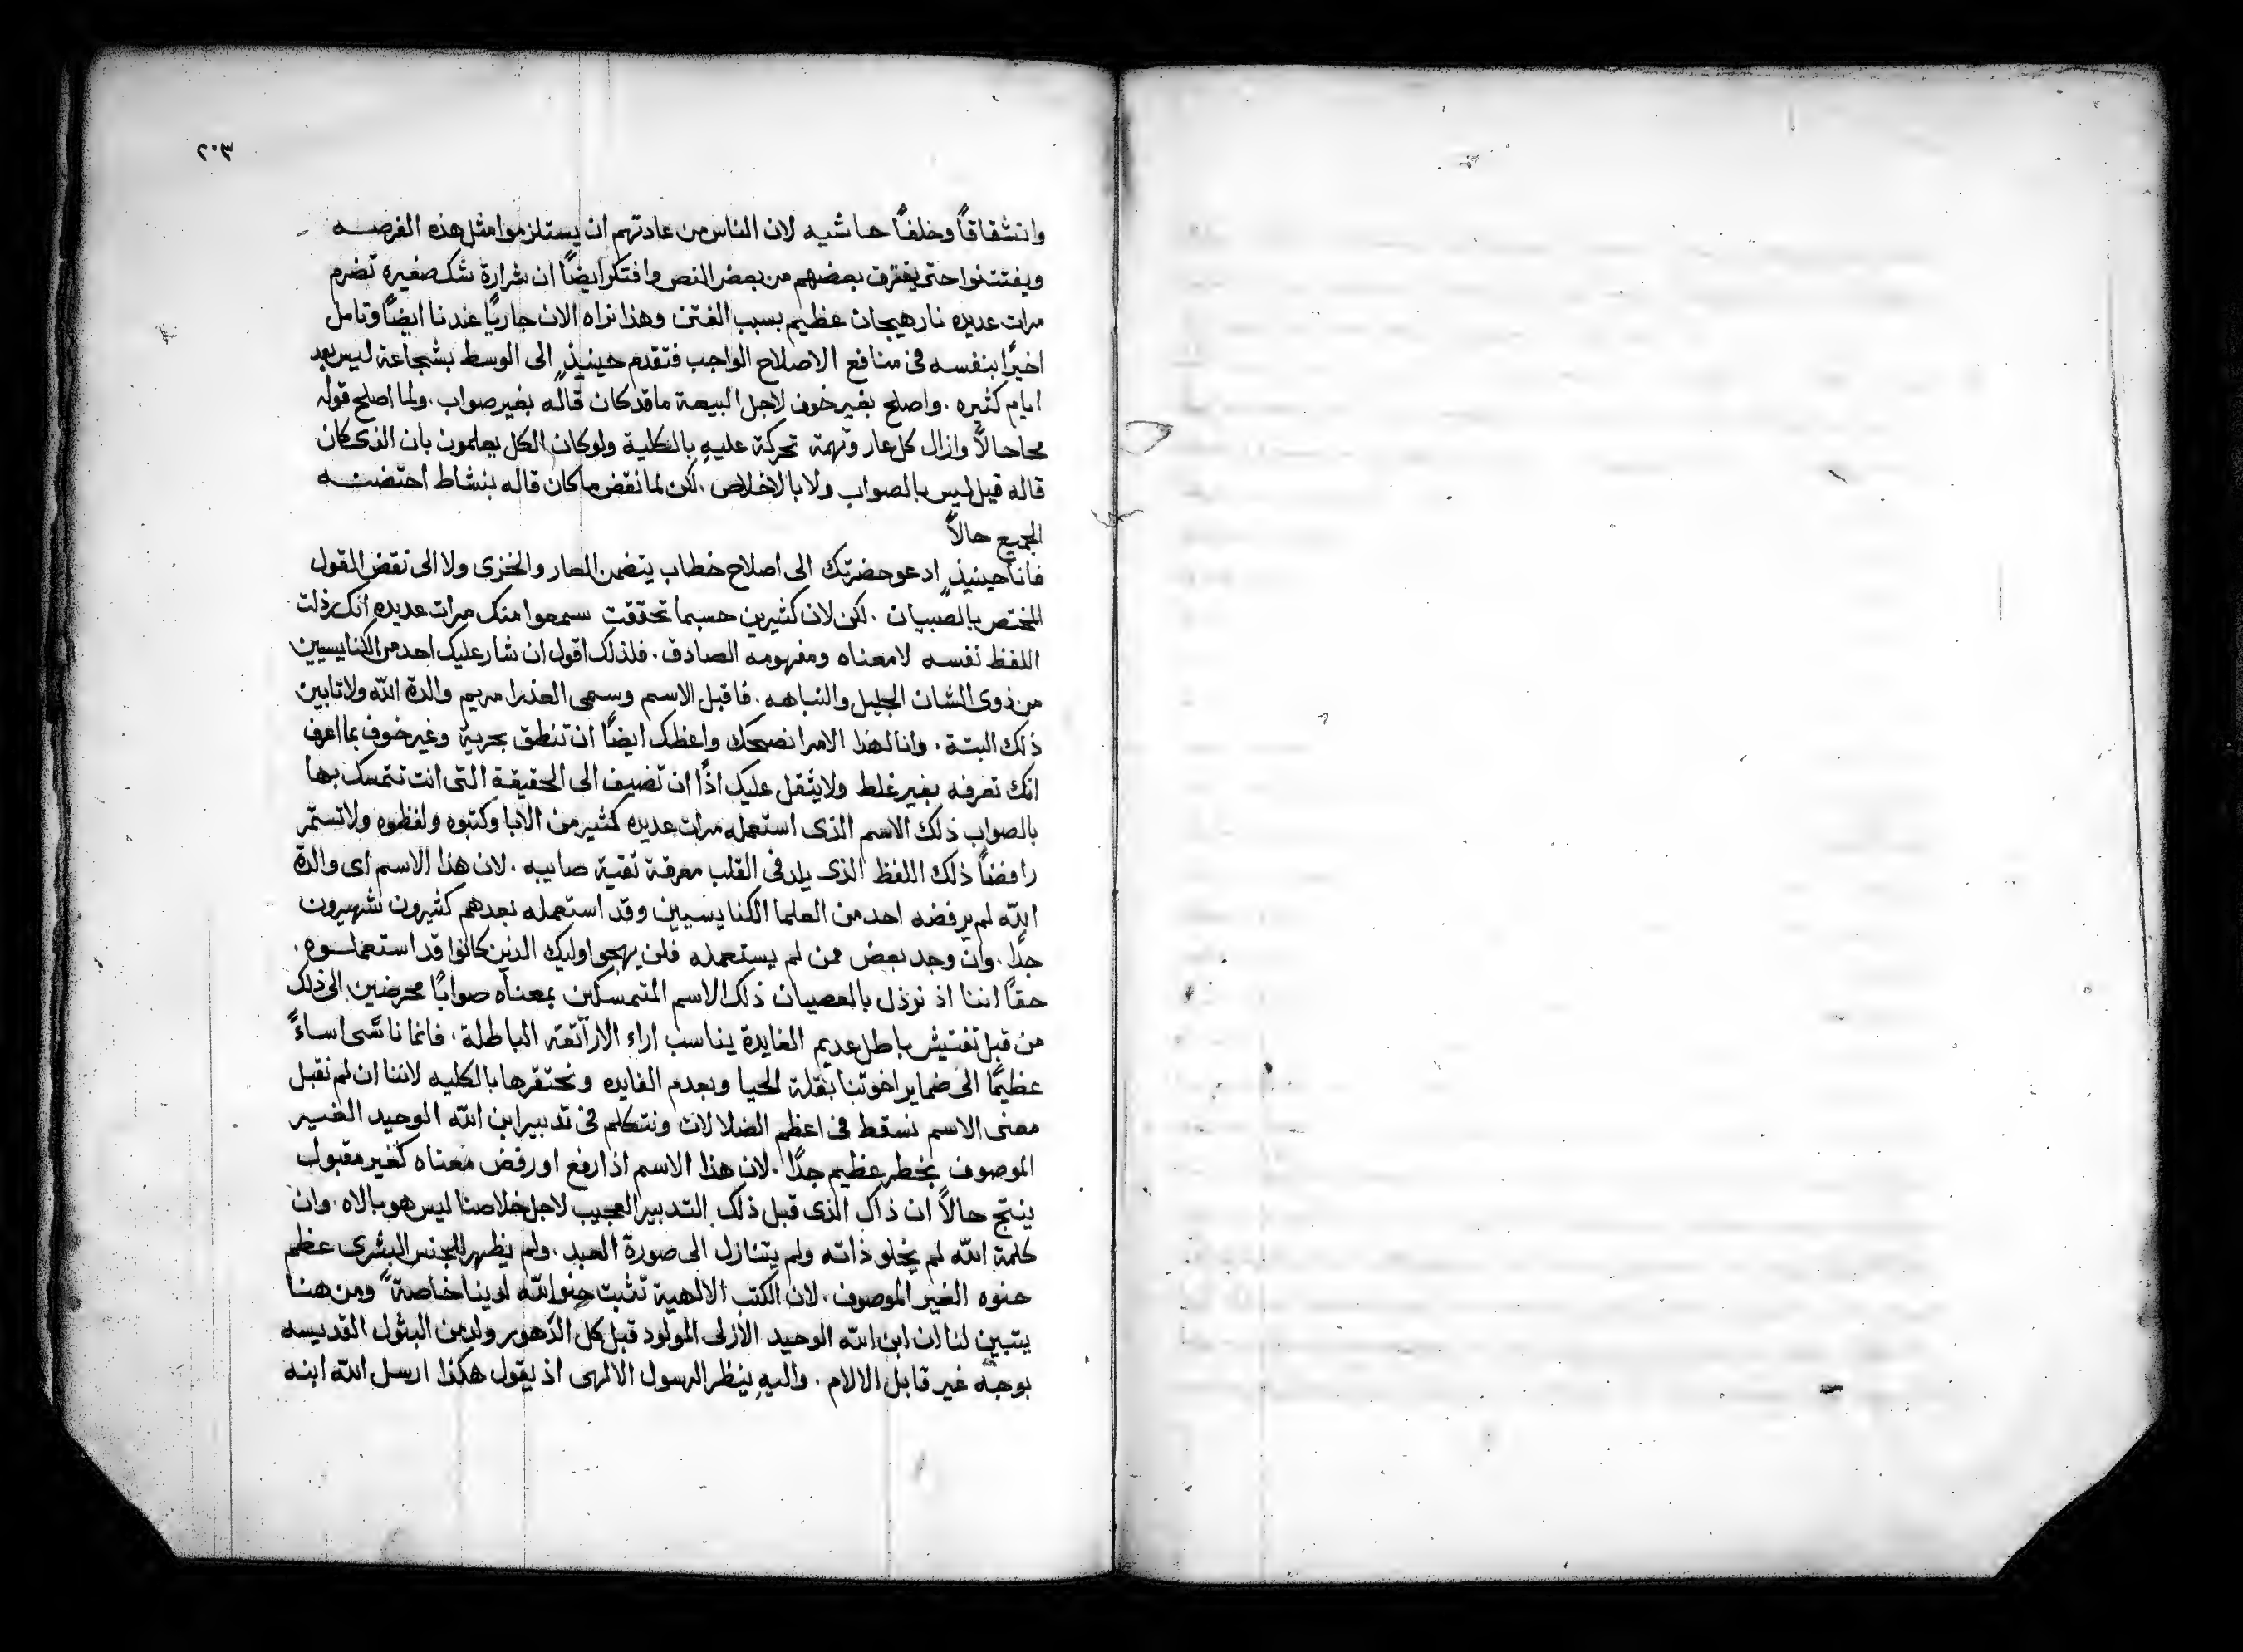 ٢٠٣
وانشقاقاً وخلفاً حاشيه لان الناس من عادتهم ان يستلزموا مثل هذه الفرصـــه
ويفتتنوا حتى يفترق بعضهم من بعض النص وافتكر ايضاً ان شرارة شك صغيره تضرم
مرات عديده نار هيجان عظيم بسبب الفتن وهذا نراه الان جارياً عندنا ايضاً وتامل
اخيراً بنفسه فى منافع الاصلاح الواجب فتقدم حينيذٍ الى الوسط بشجاعة ليس بعد
ايام كثيره . واصلح بغير خوف لاجل البيعة ما قد كان قاله بغير صواب . ولما اصلح قوله
محا حالاً وازال كل عار وتهمة تحركة عليهِ بالكلية ولو كان الكل يعلمون بان الذى كان
قاله قيل ليس بالصواب ولا بالاخلاص . لكن لما نقض ما كان قاله بنشاط احتضنـــه
الجميع حالاً
فانا حينيذٍ ادعو حضرتك الى اصلاح خطاب يتضمن العار والخزى ولا الى نقض القول
المختص بالصبيان . لكن لان كثيرين حسبما تحققت سمعوا منك مرات عديده انك رذلت
اللفظ نفسه لا معناه ومفهومه الصادق . فلذلك اقول ان شار عليك احد من الكنايسيين
من ذوى الشان الجليل والنباهه . فاقبل الاسم وسمى العذرا مريم والدة الله ولا تابين
ذلك البتة . وانا لهذا الامر انصحك واعظك ايضاً ان تنطق بحرية وغير خوف بما اعرف
انك تعرفه بغير غلط ولا يثقل عليك اذاً ان تضيف الى الحقيقة التى انت تتمسك بها
بالصواب ذلك الاسم الذى استعمله مرات عديده كثير من الابا وكتبوه ولفظوه ولا تستمر
رافضاً ذلك اللفظ الذى يلد فى القلب معرفة تقية صايبه . لان هذا الاسم اى والدة
الله لم يرفضه احد من العلما الكنايسيين وقد استعمله بعدهم كثيرون شهيرون
جداً . وان وجد بعض ممن لم يستعمله فلن يهجو اوليك الذين كانوا قد استعملـــوه .
حقاً اننا اذ نرذل بالعصيان ذلك الاسم المتمسكين بمعناه صواباً محرضين الى ذلك
من قبل تفتيش باطل عديم الفايدة يناسب اراء الاراتقة الباطلة . فانما ناتى اساءً
عظيماً الى ضماير اخوتنا بقلة الحيا وبعدم الفايده ونحتقرها بالكليه لاننا ان لم نقبل
معنى الاسم نسقط فى اعظم الضلالات ونتكلم فى تدبير ابن الله الوحيد الغـــير
الموصوف بخطر عظيم جداً . لان هذا الاسم اذا رفع او رفض معناه كغير مقبول
ينتج حالاً ان ذاك الذى قبل ذلك التدبير العجيب لاجل خلاصنا ليس هو بالاه . وان
كلمة الله لم يخلو ذاته ولم يتنازل الى صورة العبد . ولم يظهر للجنس البشرى عظم
حنوه الغير الموصوف . لان الكتب الالهية تثبت حنو الله لدينا خاصةً ومن هنا
يتبين لنا ان ابن الله الوحيد الازلى المولود قبل كل الدهور ولد من البتول القديسه
بوجه غير قابل الالام . واليهِ ينظر الرسول الالهى اذ يقول هكذا ارسل الله ابنه